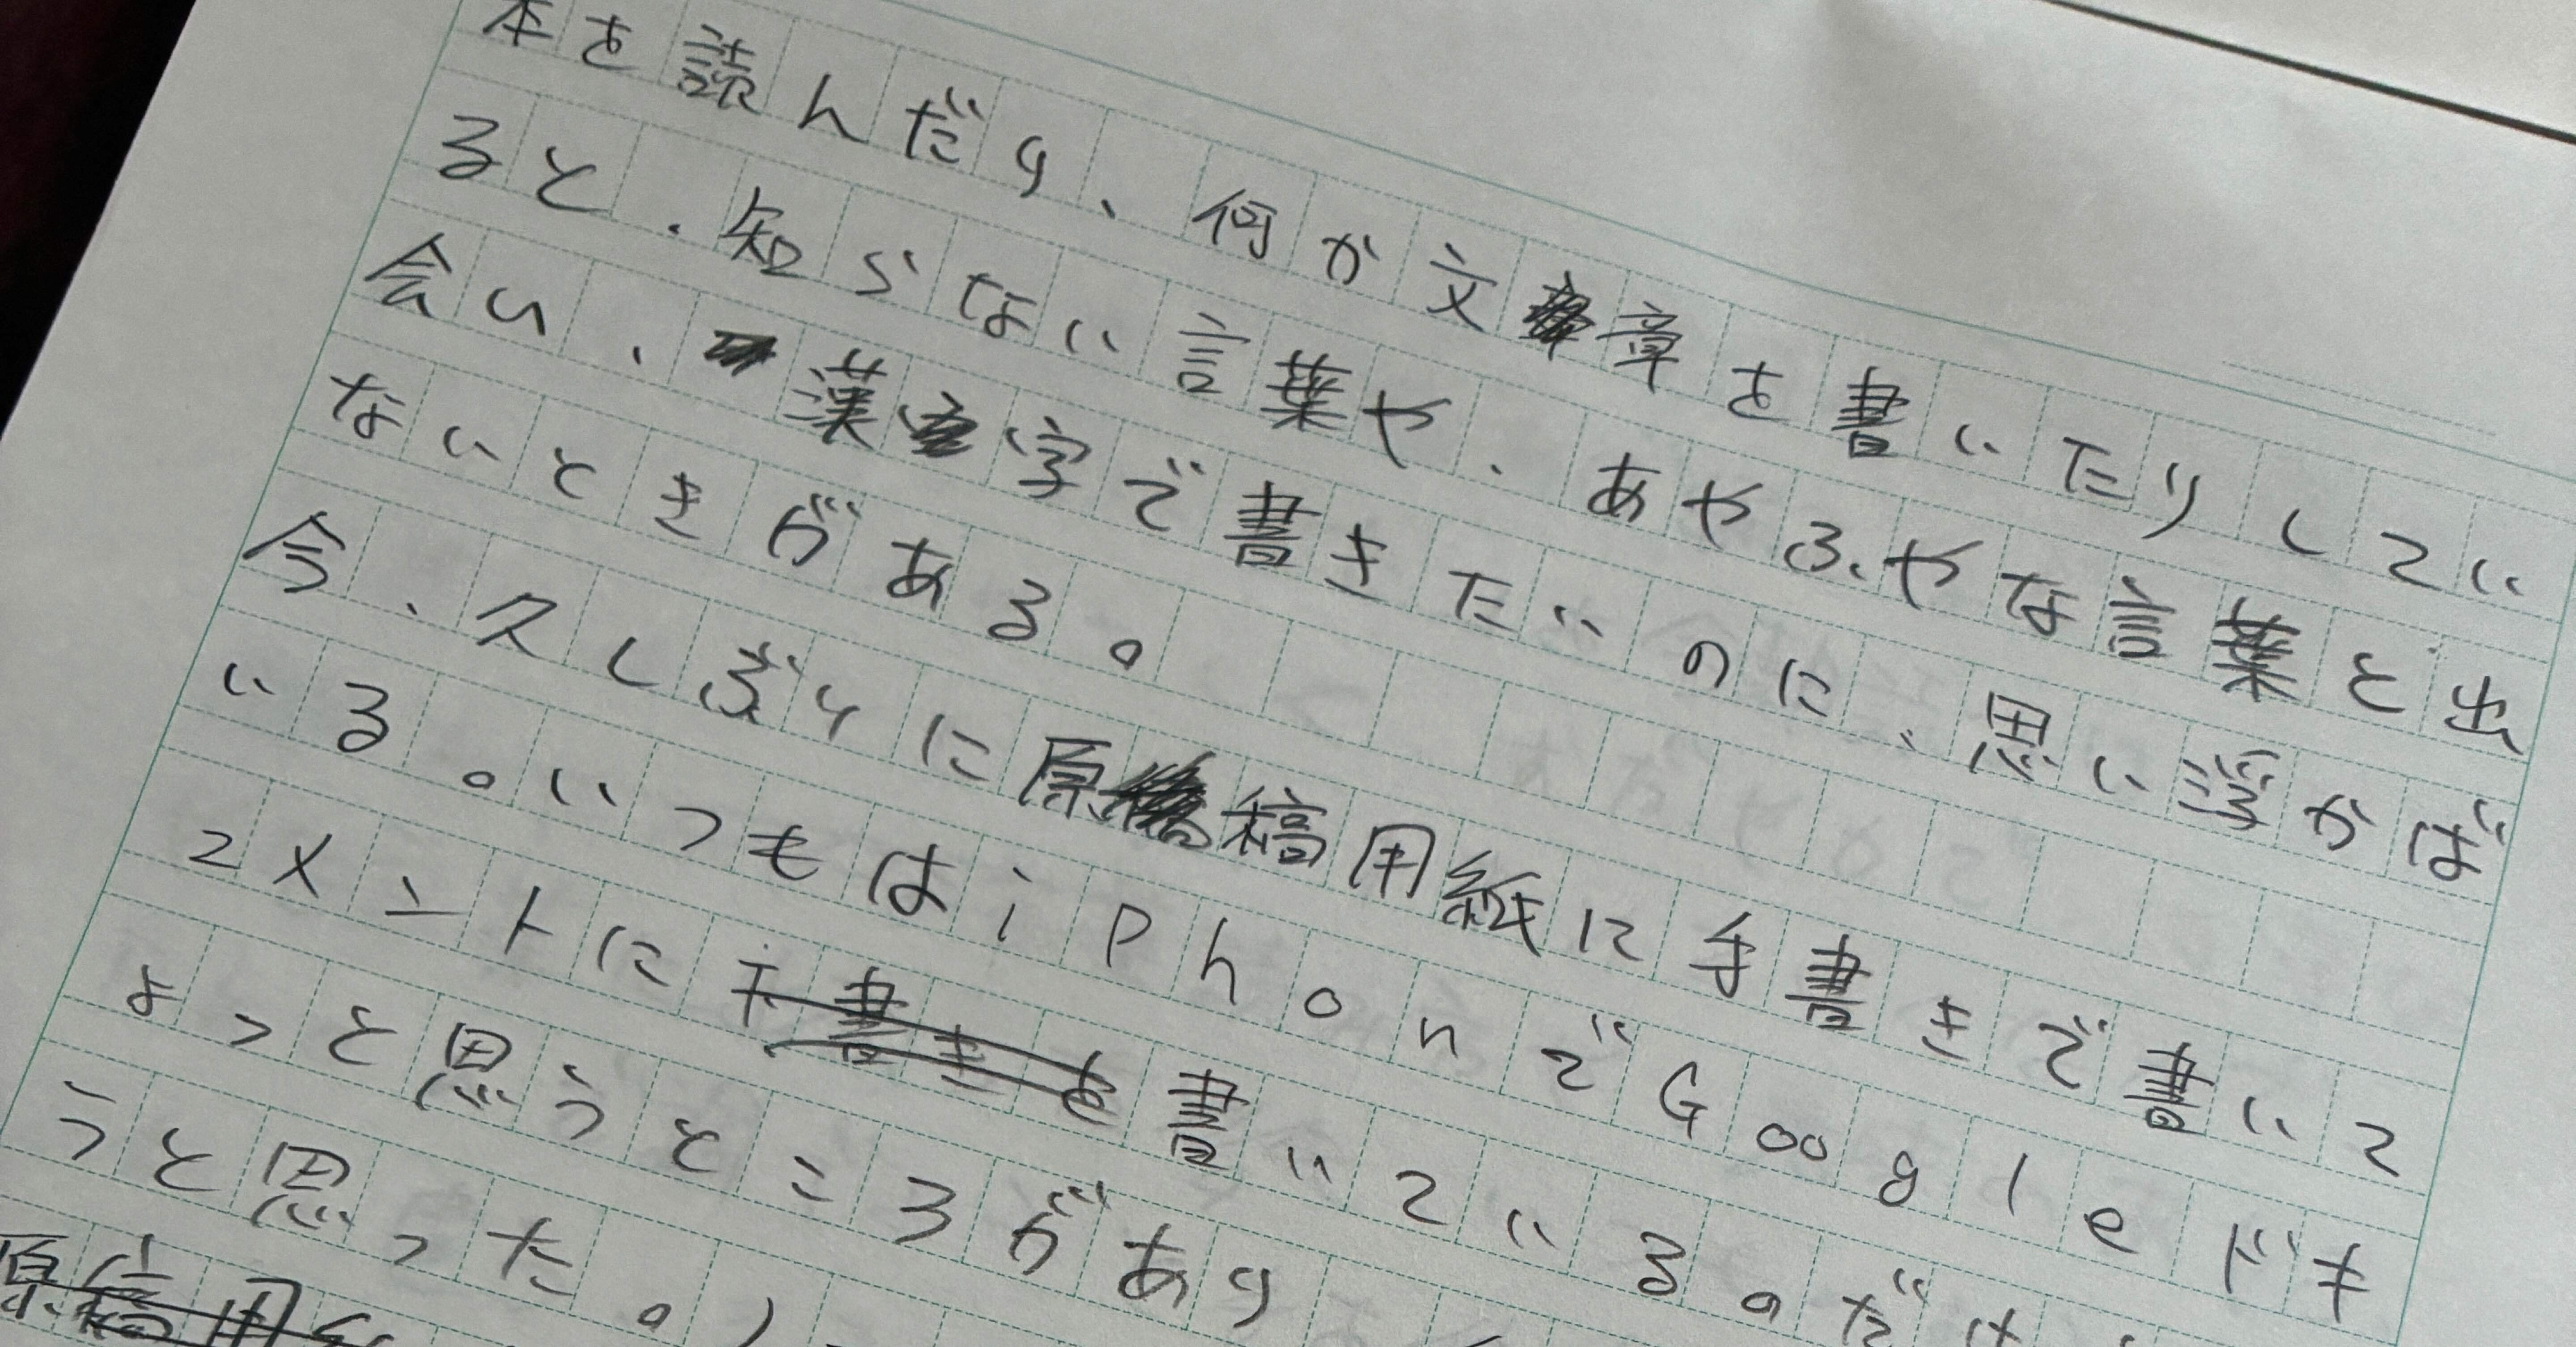 本を読んだり、何か文章を書いたりしてい
ると、知らない言葉や、あやふやな言葉と出
会い、漢字で書きたいのに、思い浮かば
ないときがある。
今、久しぶりに原稿用紙に手書きで書いて
いる。いつもはiPhonでGoogleドキ
ュメントに書いているのだけ
よっと思うところがあり
うと思った。